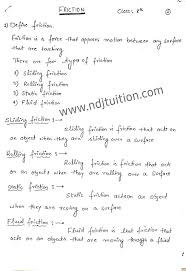 FRICTION Class: 8th
1) Define friction.
Friction is a force that opposes motion between any surface
that are touching.
There are few types of friction
1) Sliding friction
2) Rolling friction
3) Static friction
4) Fluid friction
www.ndjtuition.com
Sliding friction :→
Sliding friction is friction that acts
on an object when they are sliding over a surface
Rolling friction :→
Rolling friction is friction that acts on
an object when they are rolling over a surface
Static friction :→
Static friction acts on an object
when they are resting on a surface
Fluid friction :→
Fluid friction is that friction that
acts on an objects that are moving through a fluid